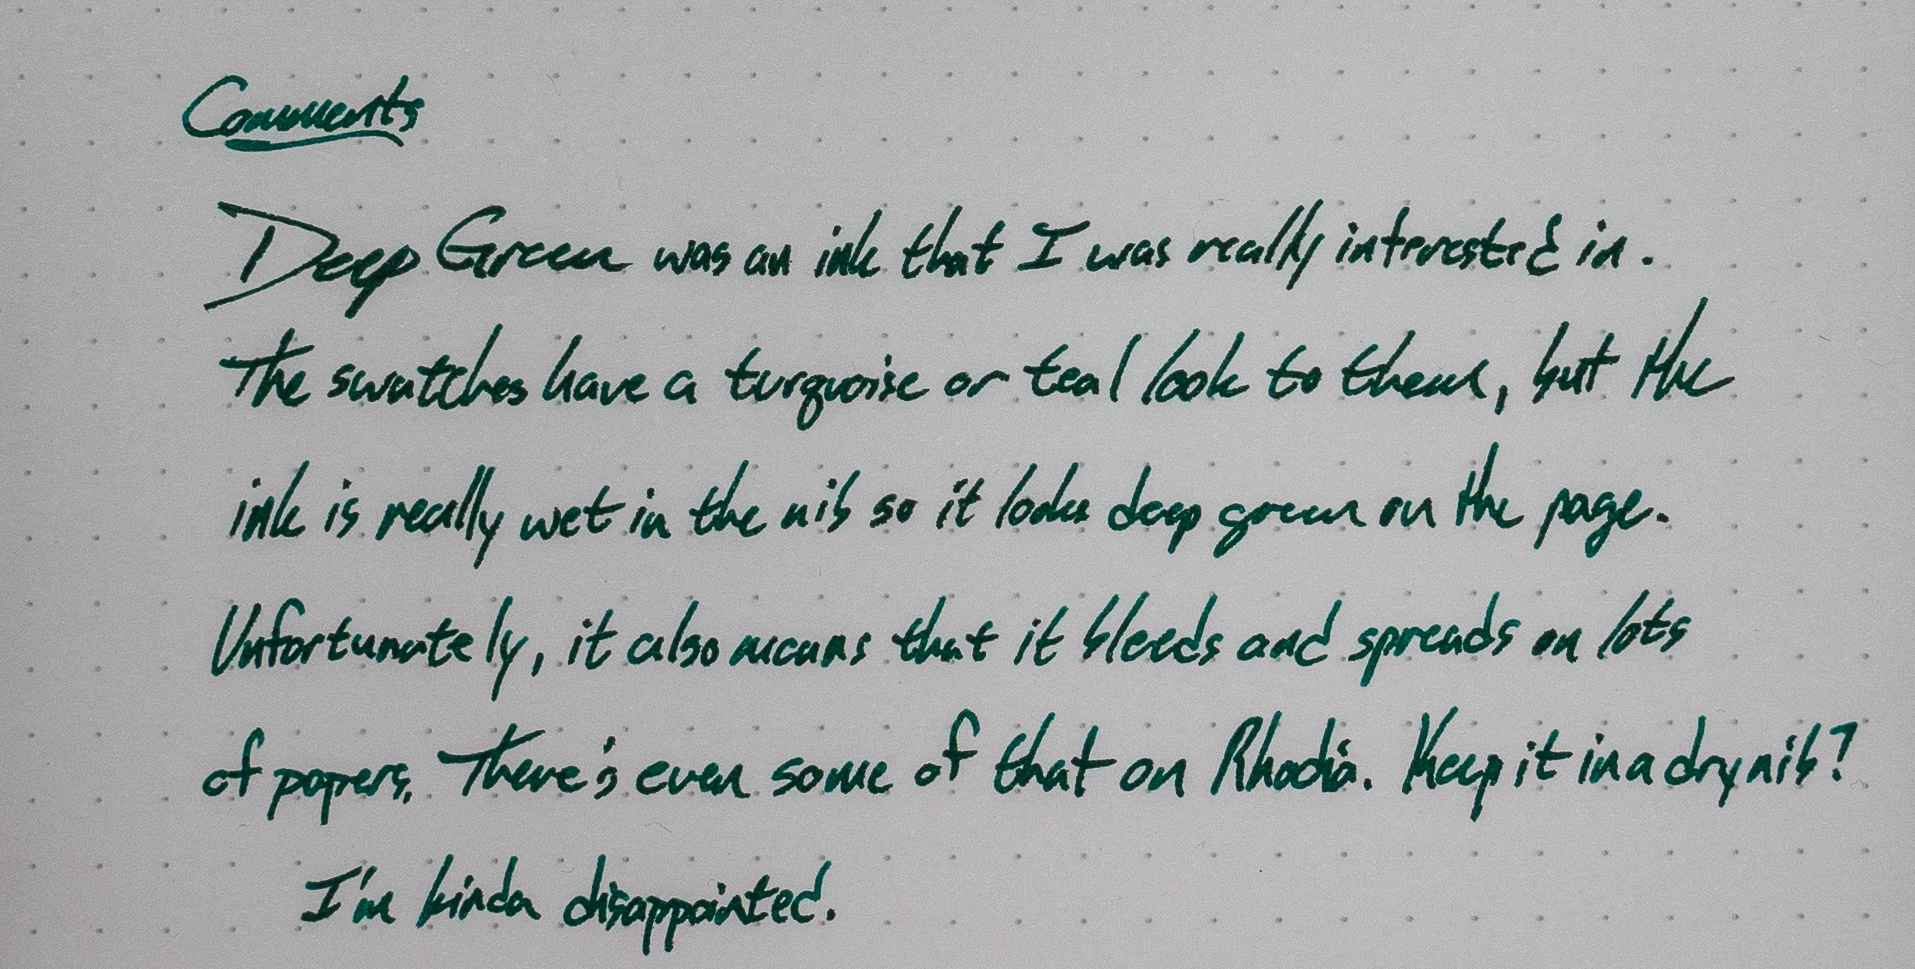 Comments
Deep Green was an ink that I was really interested in.
The swatches have a turquoise or teal look to them, but the
ink is really wet in the nib so it looks deep green on the page.
Unfortunately, it also means that it bleeds and spreads on lots
of papers. There's even some of that on Rhodia. Keep it in a dry nib?
I'm kinda disappointed.